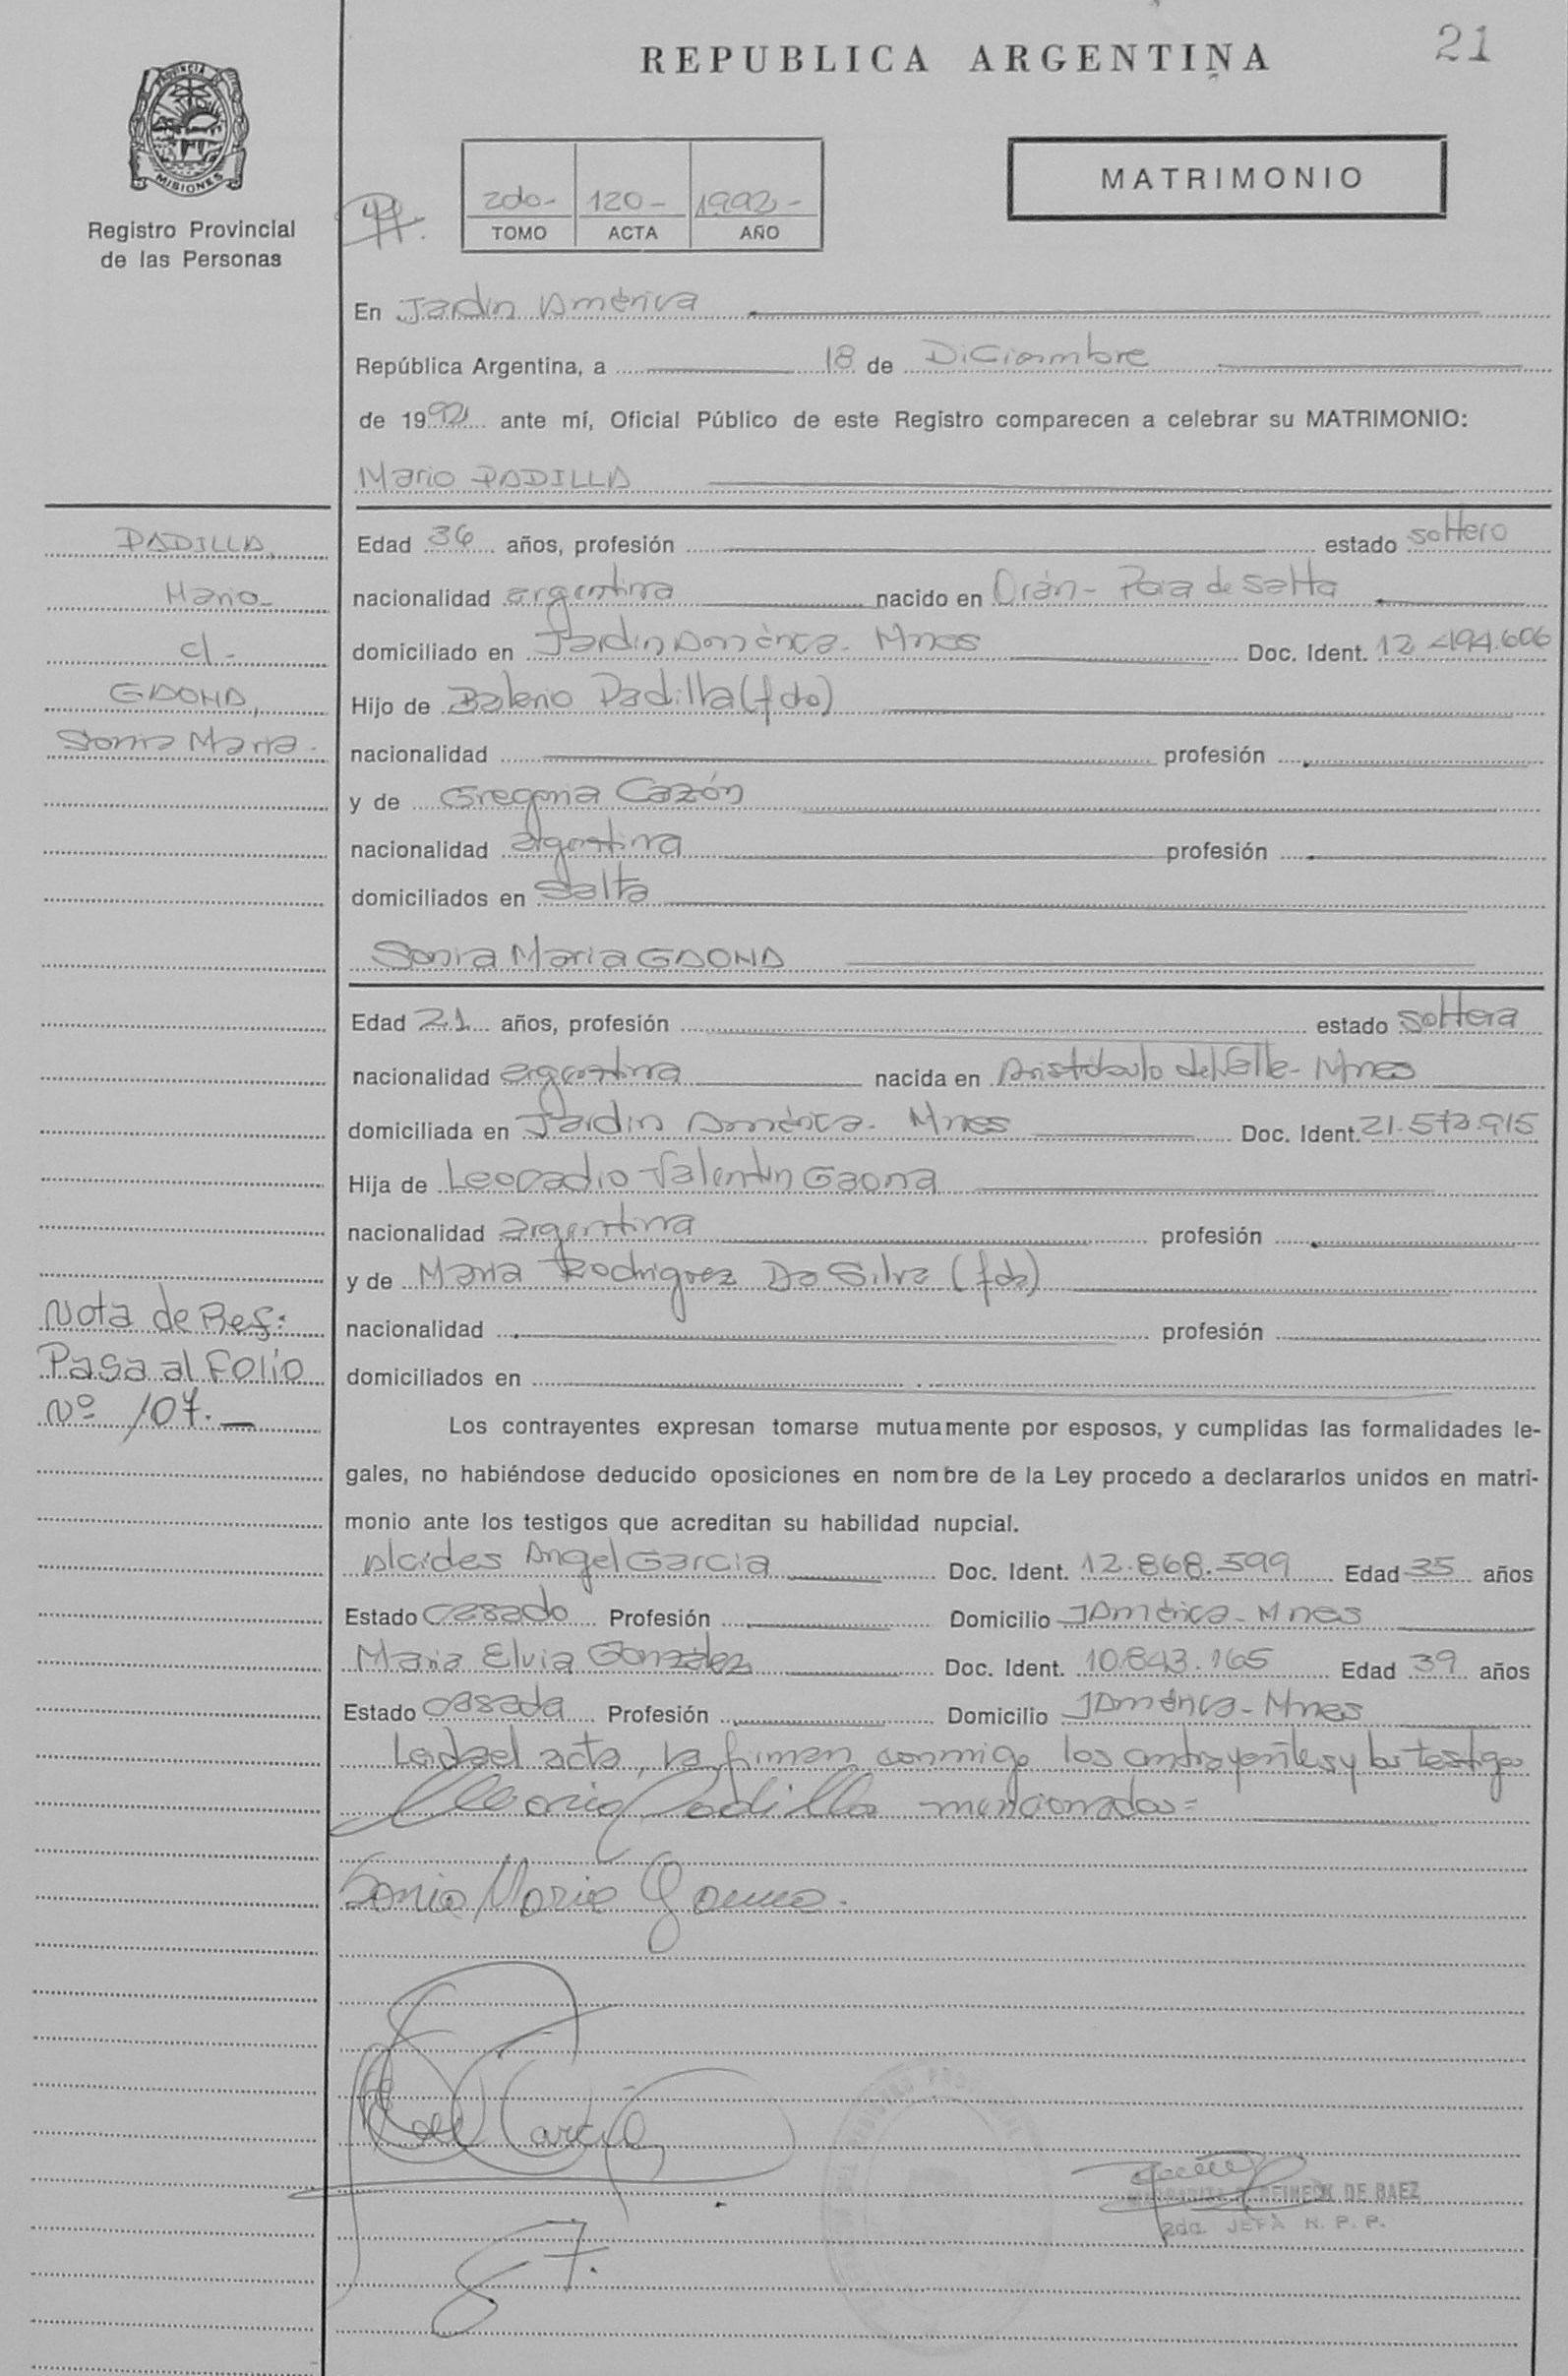 REPUBLICA ARGENTINA
21
PROVINCIA DE
MISIONES
Registro Provincial
de las Personas
MATRIMONIO
2do- 120- 1992-
TOMO ACTA AÑO
En Jardin América
República Argentina, a 18 de Diciembre
de 1992 ante mí, Oficial Público de este Registro comparecen a celebrar su MATRIMONIO:
Mario PADILLA
PADILLA,
Mario-
c/-
GAONA,
Sonia Maria.
Edad 36 años, profesión estado soltero
nacionalidad argentina nacido en Orán- Pcia de Salta
domiciliado en Jardin América- Mnes Doc. Ident. 12.494.606
Hijo de Balerio Padilla (fdo)
nacionalidad profesión
y de Gregoria Cazón
nacionalidad argentina profesión
domiciliados en Salta
Sonia Maria GAONA
Edad 21 años, profesión estado soltera
nacionalidad argentina nacida en Aristóbulo del Valle- Mnes
domiciliada en Jardin América- Mnes Doc. Ident. 21.573.915
Hija de Leocadio Valentin Gaona
nacionalidad argentina profesión
y de Maria Rodriguez Da Silva (fda)
nacionalidad profesión
domiciliados en
Nota de Ref:
Pasa al Folio
Nº 107.-
Los contrayentes expresan tomarse mutuamente por esposos, y cumplidas las formalidades le-
gales, no habiéndose deducido oposiciones en nombre de la Ley procedo a declararlos unidos en matri-
monio ante los testigos que acreditan su habilidad nupcial.
Alcides Angel Garcia Doc. Ident. 12.868.599 Edad 35 años
Estado casado Profesión Domicilio J América- Mnes
Maria Elvia González Doc. Ident. 10.843.165 Edad 39 años
Estado casada Profesión Domicilio J América- Mnes
Leida el acta, la firman conmigo los contrayentes y los testigos
Mario Padilla mencionados=
Sonia Maria Gaona.
Garcia
REINECK DE BAEZ
2da. JEFA R. P. P.